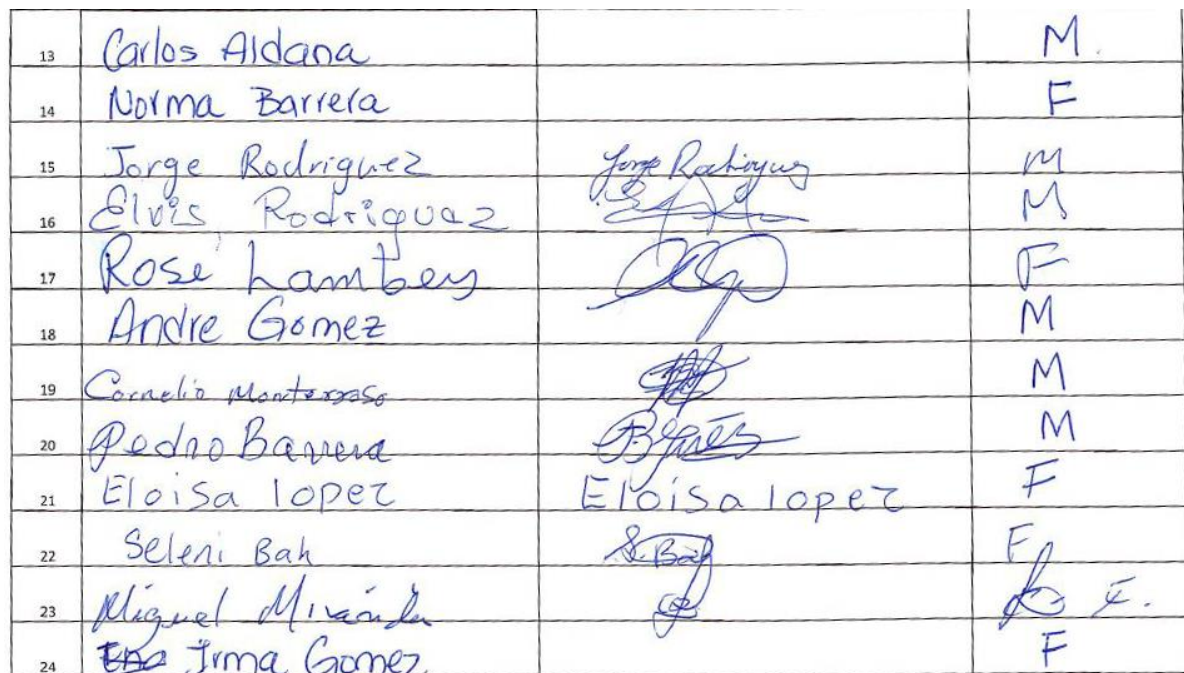 13 Carlos Aldana M.
14 Norma Barrera F
15 Jorge Rodriguez Jorge Rodriguez M
16 Elvis Rodriguez M
17 Rose Lambey F
18 Andre Gomez M
19 Cornelio Monterroso M
20 Pedro Barrera M
21 Eloisa lopez Eloisa lopez F
22 Seleni Bah S. Bah F
23 Miguel Miranda F.
24 Irma Gomez F